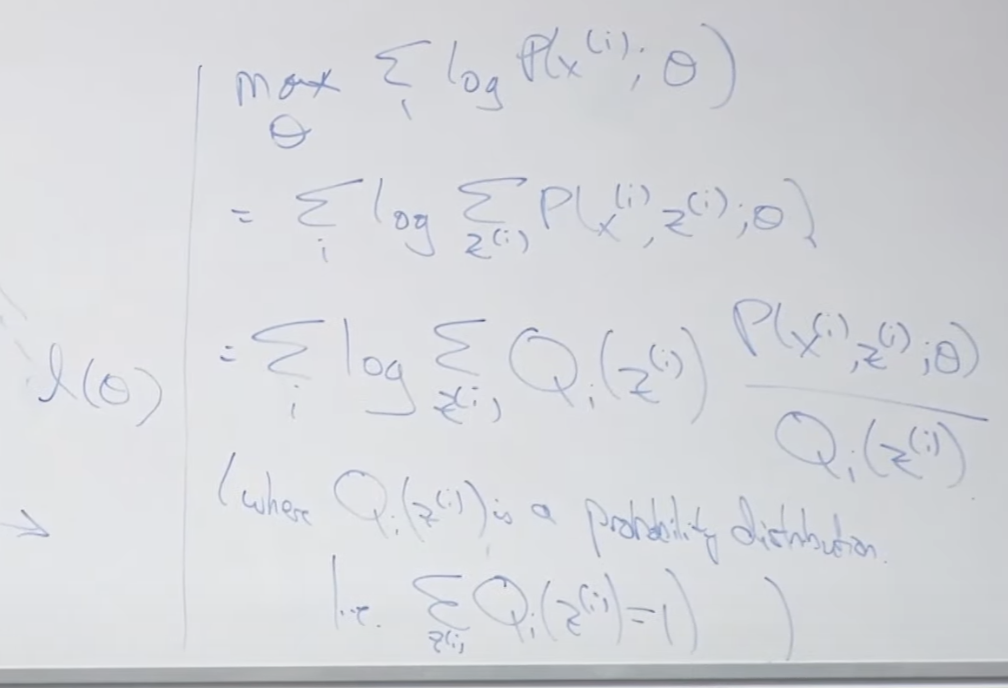 max_θ Σ_i log P(x^(i); θ)
= Σ_i log Σ_z^(i) P(x^(i), z^(i); θ)
l(θ) = Σ_i log Σ_z^(i) Q_i(z^(i)) P(x^(i), z^(i); θ) / Q_i(z^(i))
(where Q_i(z^(i)) is a probability distribution.
I.e. Σ_z^(i) Q_i(z^(i)) = 1)